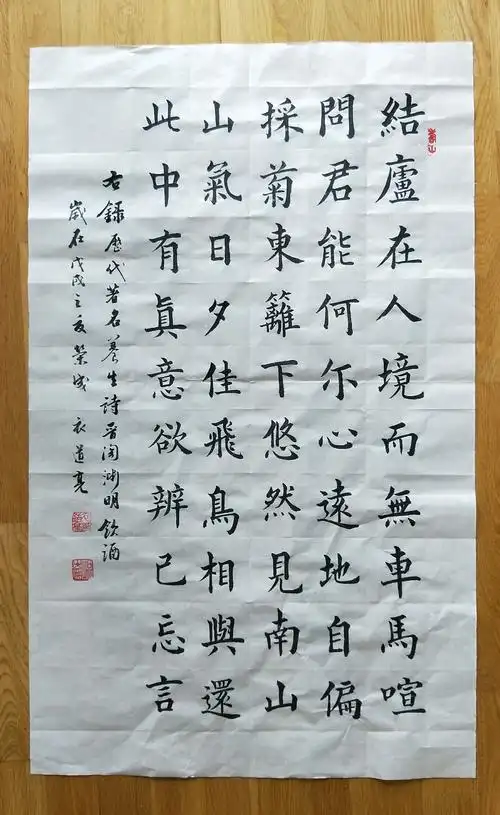 結廬在人境而無車馬喧
問君能何尔心遠地自偏
採菊東籬下悠然見南山
山氣日夕佳飛鳥相與還
此中有真意欲辨已忘言
右録歷代著名養生詩晋陶淵明飲酒
歲在戊戌之夏榮成衣道亮